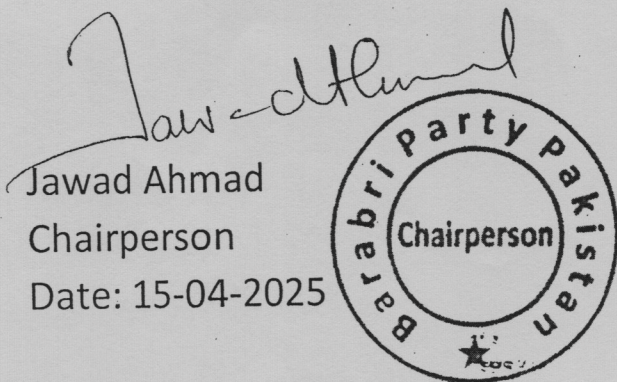 Jawad Ahmad
Jawad Ahmad
Chairperson
Date: 15-04-2025
Barabri Party Pakistan
Chairperson